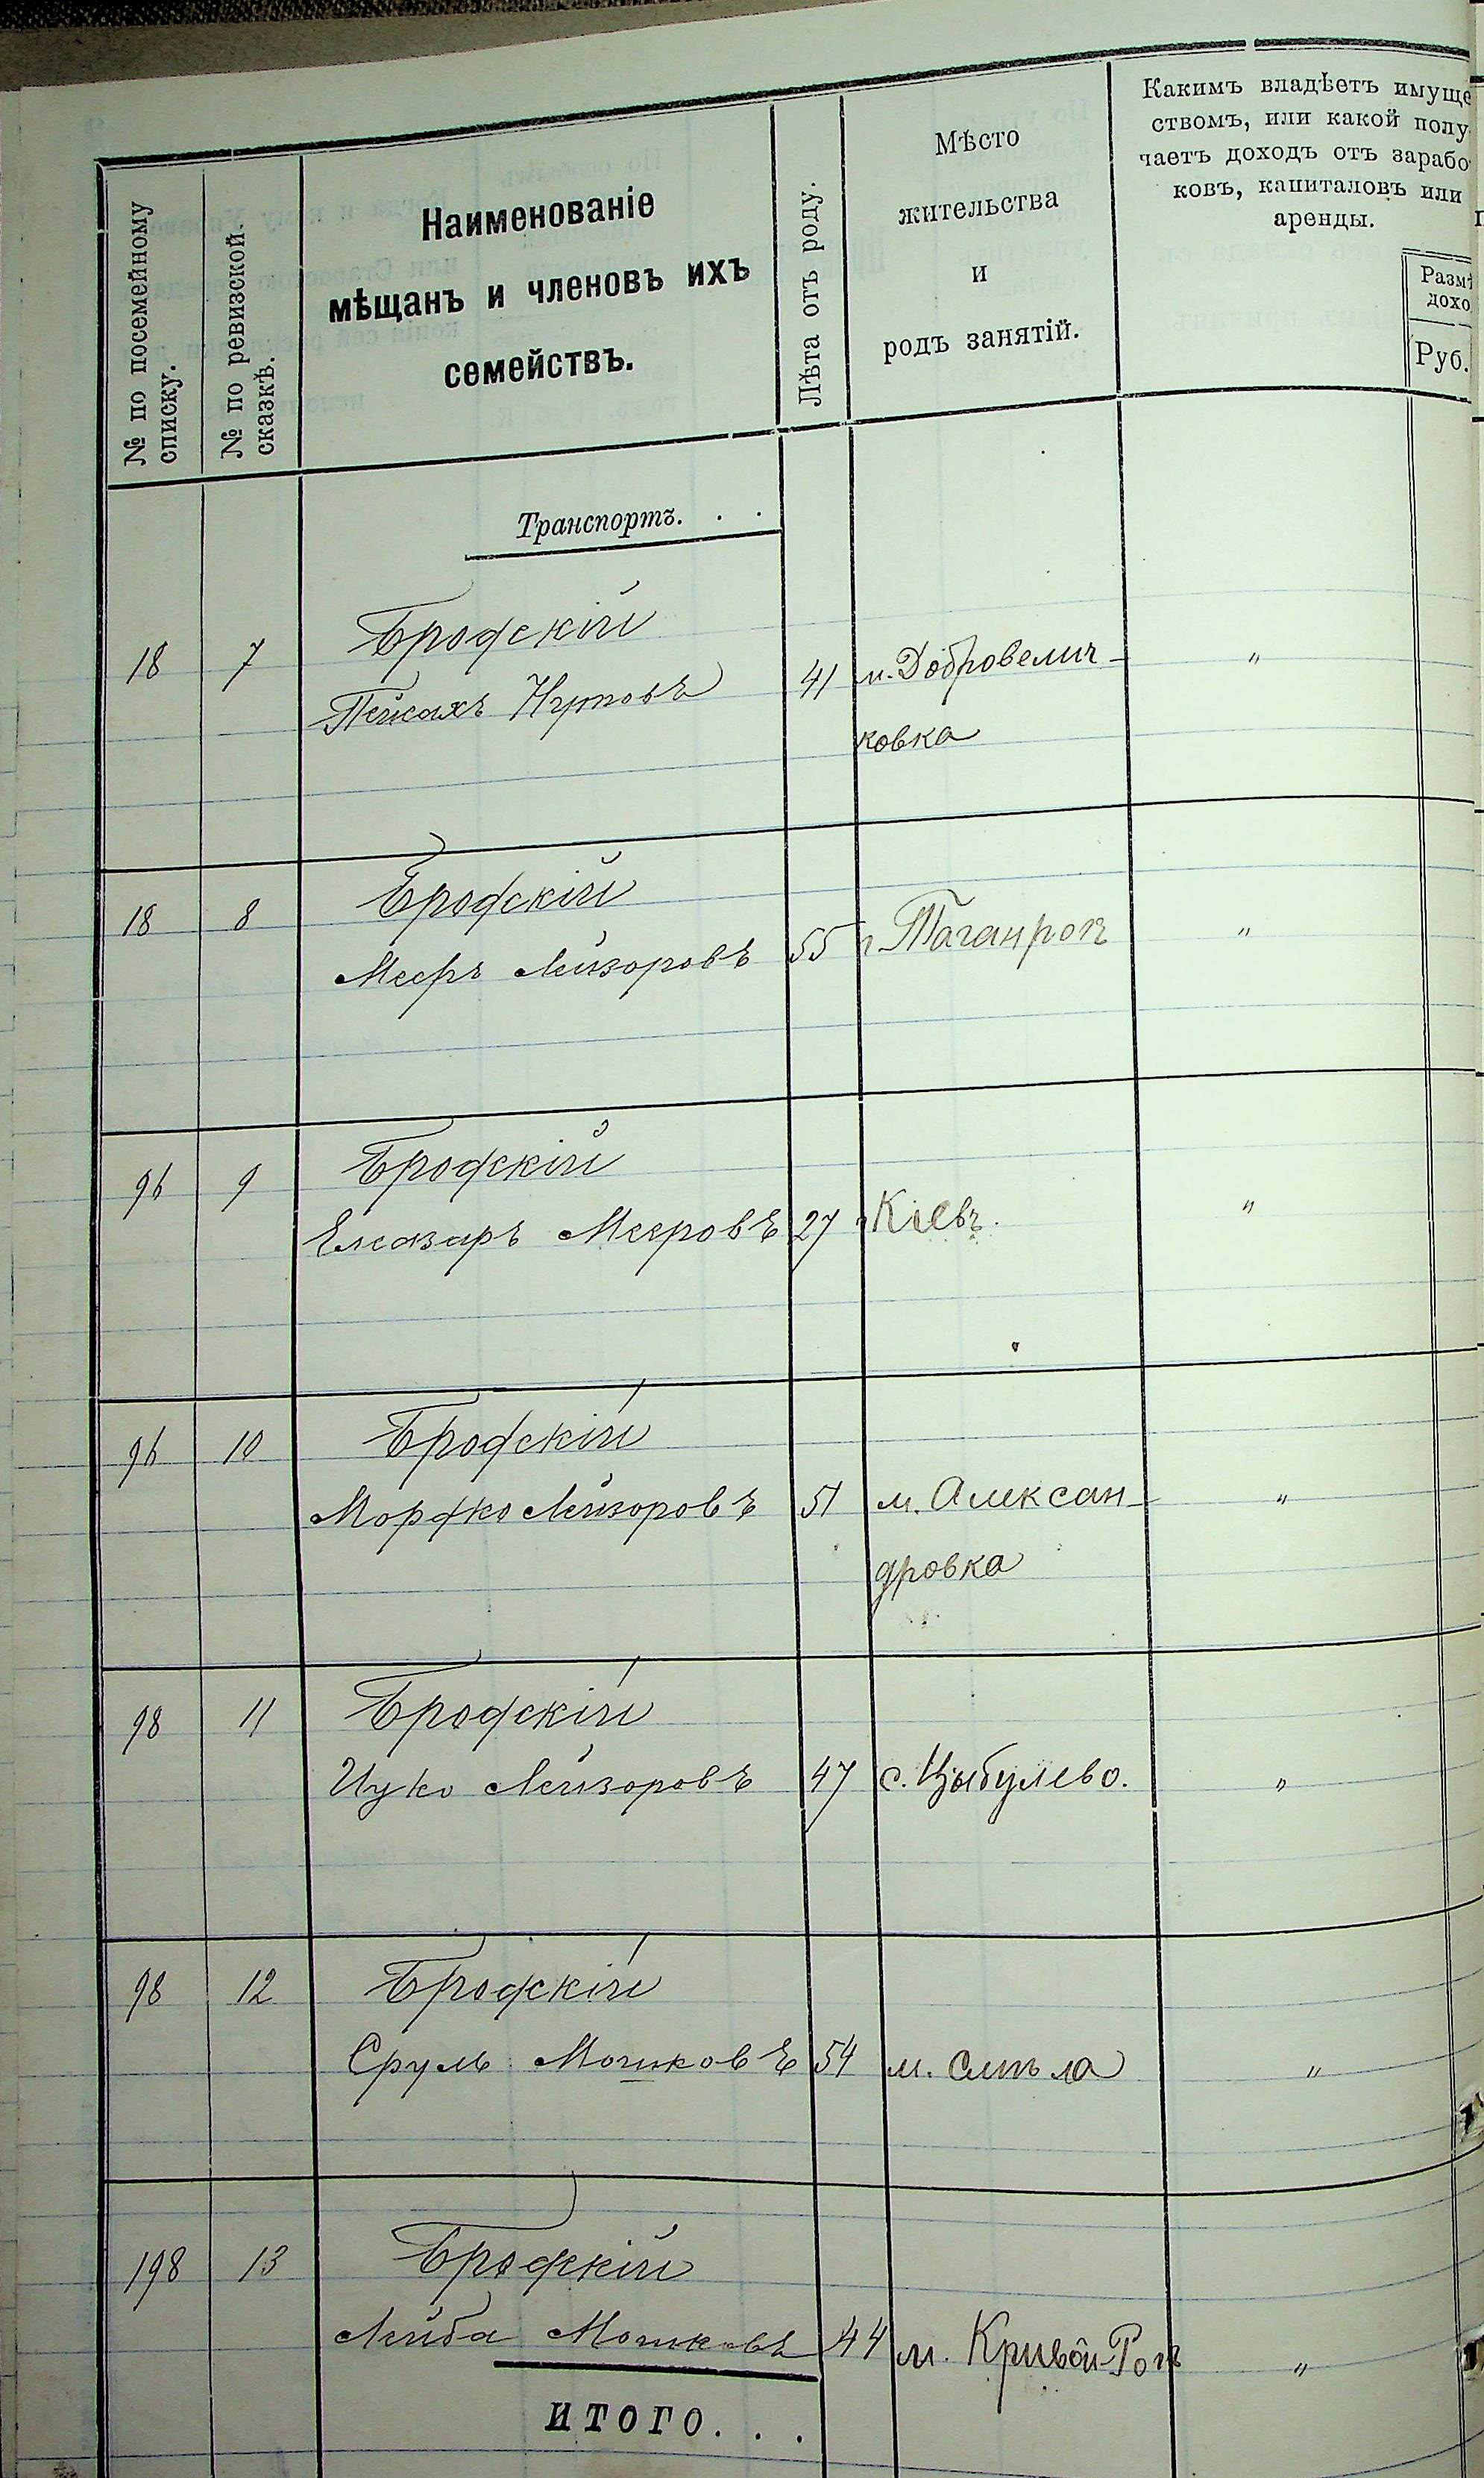 № по посемейному
списку.
№ по ревизской
сказкѣ.
Наименованіе
мѣщанъ и членовъ ихъ
семействъ.
Лѣта отъ роду.
Мѣсто
жительства
и
родъ занятій.
Какимъ владѣетъ имуще
ствомъ, или какой полу
чаетъ доходъ отъ зарабо
ковъ, капиталовъ или
аренды.
Разм
дохо
Руб.
Транспортъ. . .
18 7 Бродскій
Пейсахъ 41 м. Добровелич-
ковка "
18 8 Бродскій
Мееръ Лейзоровъ 55 г. Таганрогъ "
96 9 Бродскій
Елеазаръ Мееровъ 27 г. Кіевъ. "
96 10 Бродскій
Мордко Лейзоровъ 51 м. Алексан-
дровка "
98 11 Бродскій
Ицко Лейзоровъ 47 с. Цыбулево. "
98 12 Бродскій
Сруль Мошковъ 54 м. Смѣла "
198 13 Бродскій
Лейба Мошковъ 44 м. Кривой-Рогъ "
ИТОГО. . .